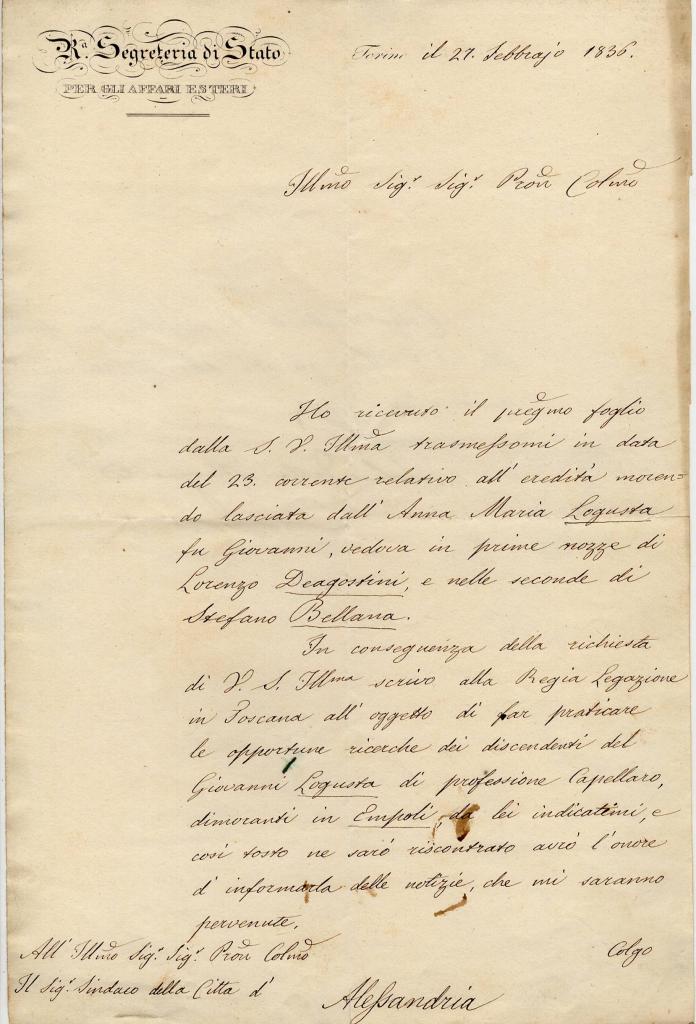 R.ª Segreteria di Stato
PER GLI AFFARI ESTERI
Torino il 27. Febbrajo 1836.
Illmo Sig.r Sig.r Pron Colmo
Ho ricevuto il pregmo foglio
dalla S. V. Illma trasmessomi in data
del 23. corrente relativo all' eredità moren=
do lasciata dall' Anna Maria Logusta
fu Giovanni, vedova in prime nozze di
Lorenzo Deagostini, e nelle seconde di
Stefano Bellana.
In conseguenza della richiesta
di V. S. Illma scrivo alla Regia Legazione
in Toscana all' oggetto di far praticare
le opportune ricerche dei discendenti del
Giovanni Logusta di professione Capellaro,
dimoranti in Empoli, da lei indicatimi, e
così tosto ne sarò riscontrato avrò l'onore
d' informarla delle notizie, che mi saranno
pervenute.
Colgo
All' Illmo Sig.r Sig.r Pron Colmo
Il Sig.r Sindaco della Città d'
Alessandria